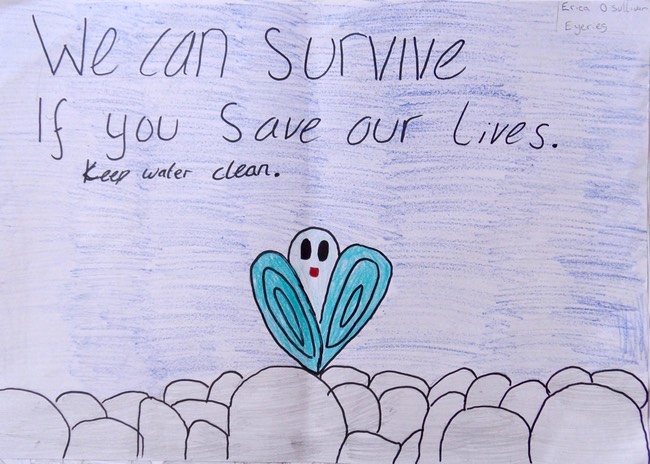 Erica O Sullivan
Eyeries
We can survive
If you save our lives.
Keep water clean.